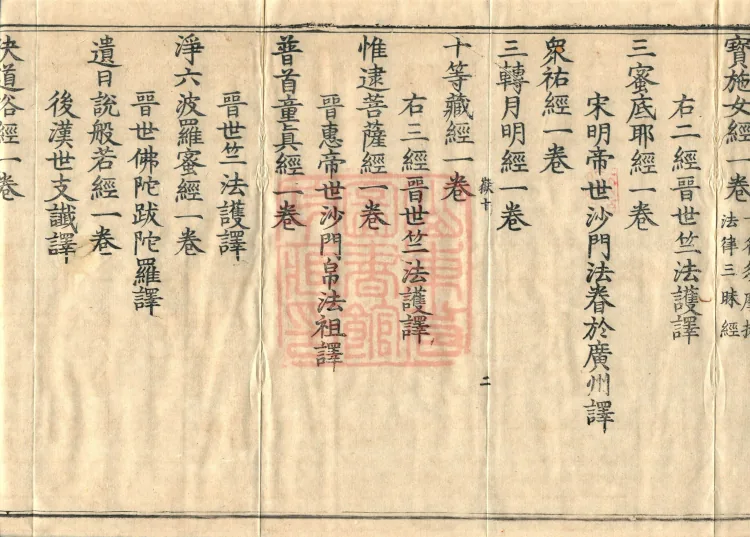 寶施女經一卷
法律三昧經
右二經晉世竺法護譯
三蜜底耶經一卷
宋明帝世沙門法眷於廣州譯
衆祐經一卷
三轉月明經一卷
嶽十
二
十等藏經一卷
右三經晉世竺法護譯
惟逮菩薩經一卷
晉惠帝世沙門帛法祖譯
普首童真經一卷
晉世竺法護譯
淨六波羅蜜經一卷
晉世佛陀跋陀羅譯
遺日說般若經一卷
後漢世支讖譯
決道俗經一卷